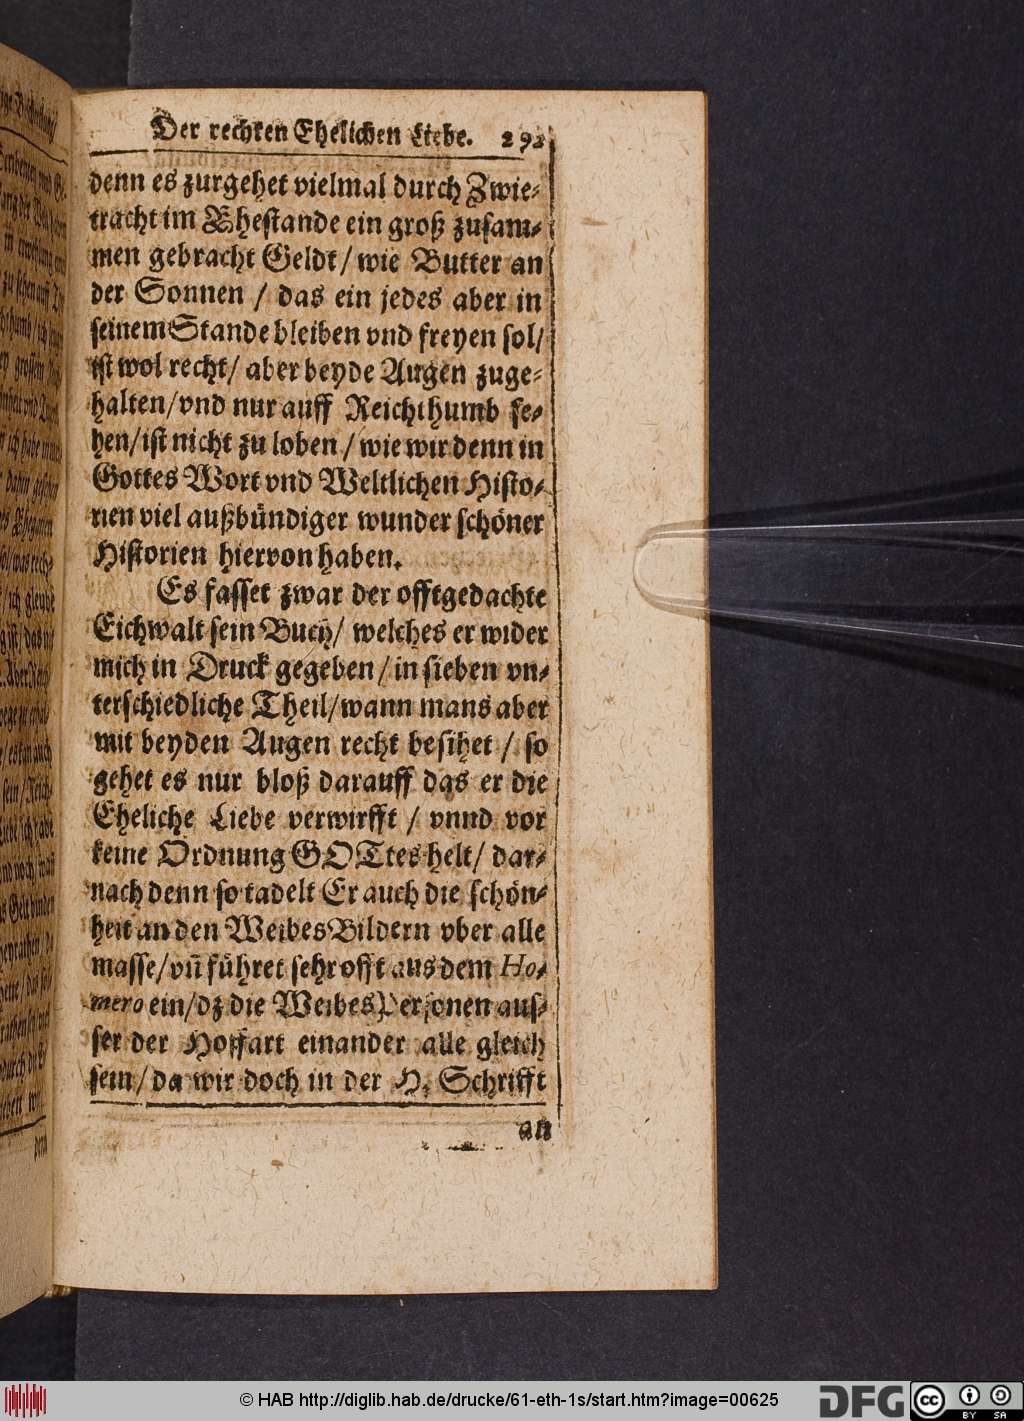 Der rechten Ehelichen Liebe. 292
denn es zurgehet vielmal durch Zwie-
tracht im Ehestande ein groß zusam-
men gebracht Geldt / wie Butter an
der Sonnen / das ein jedes aber in
seinem Stande bleiben vnd freyen sol/
ist wol recht/ aber beyde Augen zuge-
halten/vnd nur auff Reichthumb se-
hen/ist nicht zu loben / wie wir denn in
Gottes Wort vnd Weltlichen Histo-
rien viel außbündiger wunder schöner
Historien hiervon haben.
Es fasset zwar der offtgedachte
Eichwalt sein Buch/ welches er wider
mich in Druck gegeben / in sieben vn-
terschiedliche Theil/wann mans aber
mit beyden Augen recht besihet / so
gehet es nur bloß darauff das er die
Eheliche Liebe verwirfft / vnnd vor
keine Ordnung GOTtes helt/ dar-
nach denn so tadelt Er auch die schön-
heit an den WeibesBildern vber alle
masse/vñ führet sehr offt aus dem Ho-
mero ein/dz die WeibesPersonen aus-
ser der Hoffart einander alle gleich
sein/ da wir doch in der H. Schrifft
an
© HAB http://diglib.hab.de/drucke/61-eth-1s/start.htm?image=00625
DFG
cc
BY SA